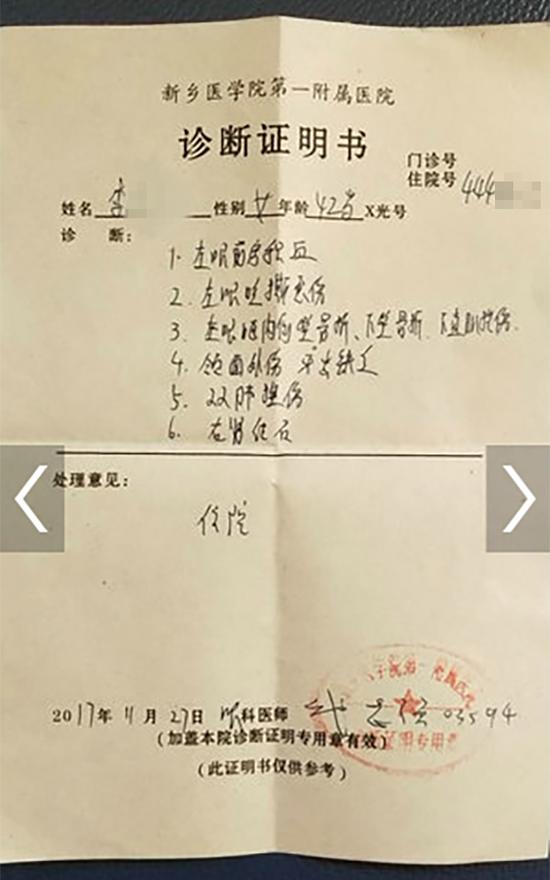 新乡医学院第一附属医院
诊断证明书
门诊号
住院号 444
姓名 李 性别 女 年龄 42岁 X光号
诊 断:
1. 左眼前房积血
2. 左眼睑撕裂伤
3. 左眼眶内侧壁骨折、下壁骨折 下直肌挫伤.
4. 颌面外伤 牙齿缺失
5. 双肺挫伤
6. 右肾结石
处理意见:
住院
2017年 11月 27日 眼科医师 03594
(加盖本院诊断证明专用章有效)
(此证明书仅供参考)
学院第一附属医院
证明专用章